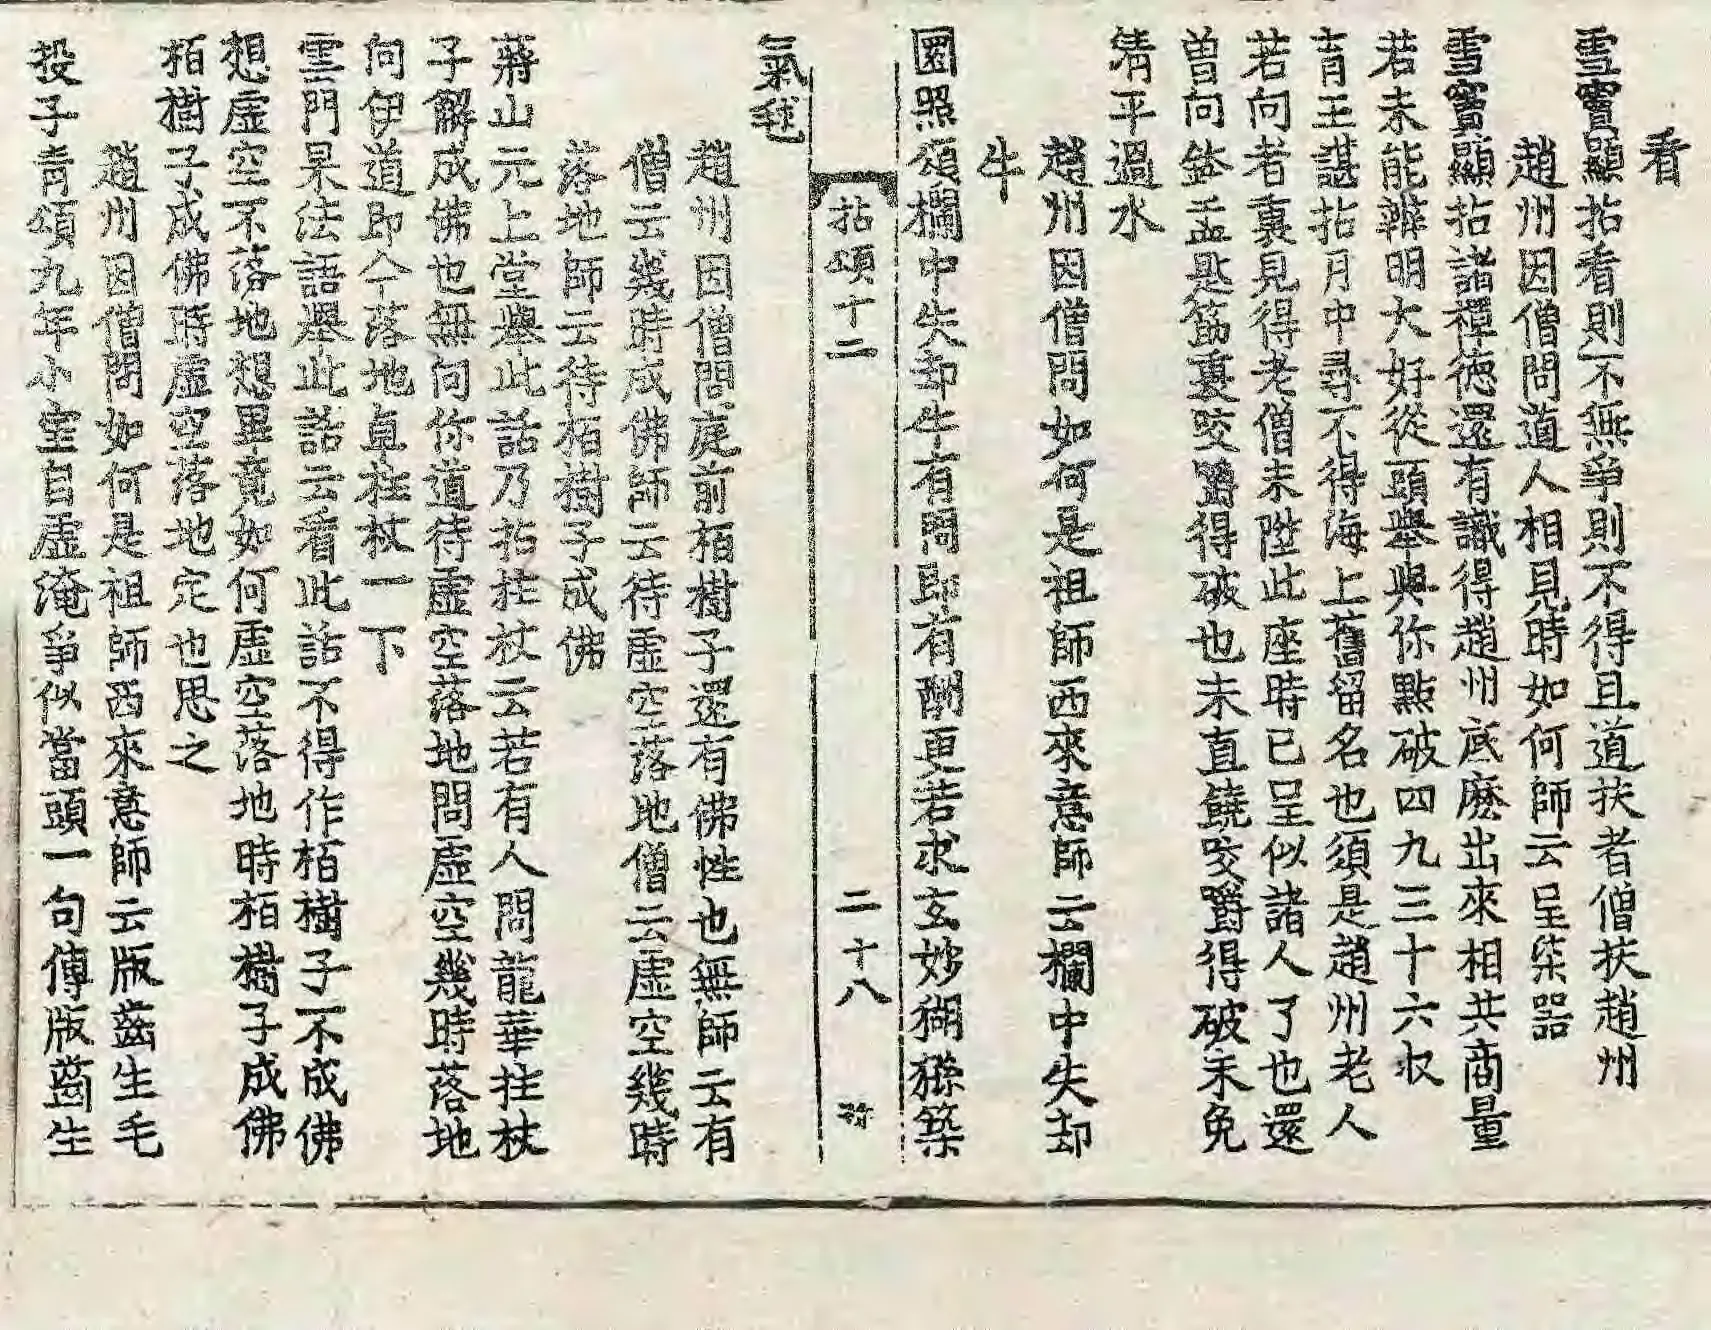 看
雪竇顯拈看則不無爭則不得且道扶者僧扶趙州
趙州因僧問道人相見時如何師云呈柒器
雪竇顯拈諸禪德還有識得趙州底麽出來相共商量
若未能辨明大好從頭舉與你點破四九三十六収
育王諶拈月中尋不得海上舊留名也須是趙州老人
若向者裏見得老僧未陞此座時已呈似諸人了也還
曽向鉢盂匙筯裏咬嚼得破也未直饒咬嚼得破未免
清平過水
趙州因僧問如何是祖師西來意師云欄中失却
牛
圓照頌欄中失却牛有問即有酬更若求玄妙猢猻築
拈頌十二 二十八
氣毬
趙州因僧問庭前栢樹子還有佛性也無師云有
僧云幾時成佛師云待虛空落地僧云虛空幾時
落地師云待栢樹子成佛
蔣山元上堂舉此話乃拈拄杖云若有人問龍華拄杖
子解成佛也無向你道待虛空落地問虛空幾時落地
向伊道即今落地卓拄杖一下
雲門杲法語舉此話云看此話不得作栢樹子不成佛
想虛空不落地想畢竟如何虛空落地時栢樹子成佛
栢樹子成佛時虛空落地定也思之
趙州因僧問如何是祖師西來意師云版齒生毛
投子青頌九年小室自虛淹爭似當頭一句傳版齒生